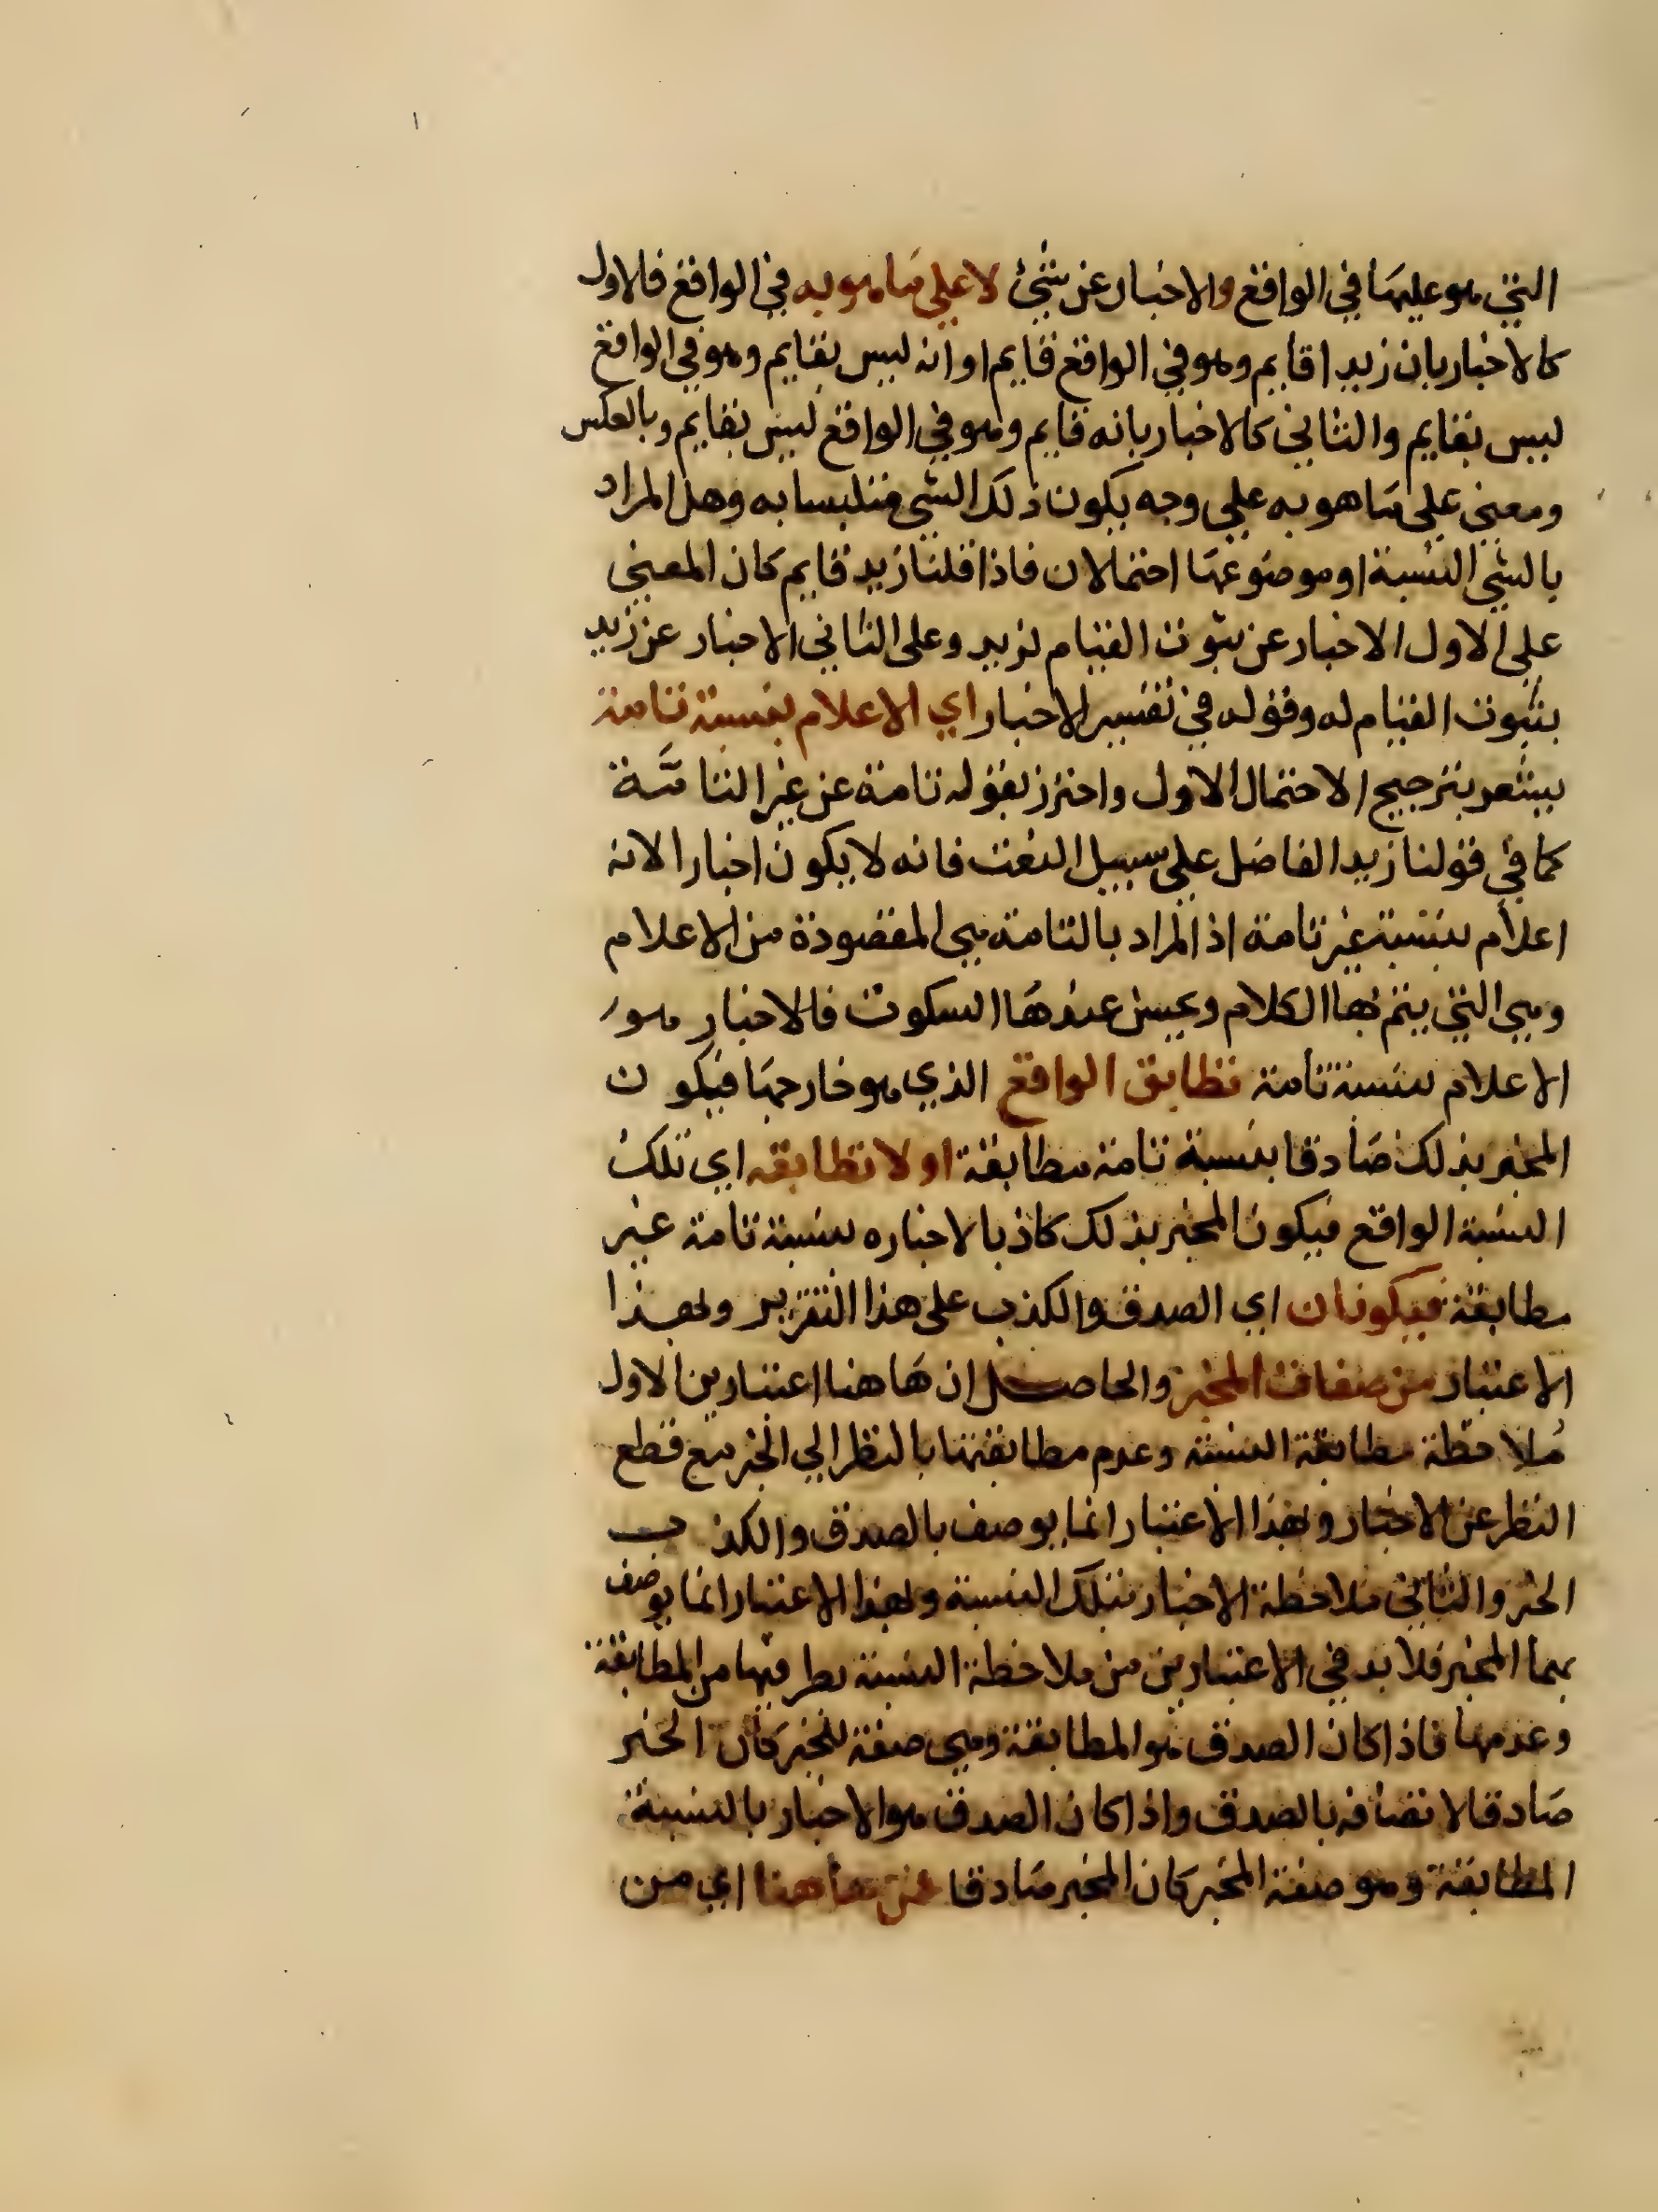 التي هو عليها في الواقع والاخبار عن شئ لا على ما هو به في الواقع فالاول
كالاخبار بان زيدا قايم وهو في الواقع قايم او انه ليس بقايم وهو في الواقع
ليس بقايم والثاني كالاخبار بانه قايم وهو في الواقع ليس بقايم وبالعكس
ومعنى على ما هو به على وجه يكون ذلك الشي متلبسا به وهل المراد
بالشي النسبة او موضوعها احتمالان فاذا قلنا زيد قايم كان المعنى
على الاول الاخبار عن ثبوت القيام لزيد وعلى الثاني الاخبار عن زيد
بثبوت القيام له وقوله في تفسير الاخبار اي الاعلام بنسبة تامة
يشعر بترجيح الاحتمال الاول واحترز بقوله تامة عن غير التامة
كما في قولنا زيد الفاضل على سبيل النعت فانه لا يكون اخبارا لانه
اعلام بنسبة غير تامة اذ المراد بالتامة هي المقصودة من الاعلام
وهي التي يتم بها الكلام ويحسن عندها السكوت فالاخبار هو
الاعلام بنسبة تامة تطابق الواقع الذي هو خارجها فيكون
المخبر بذلك صادقا بنسبة تامة مطابقة او لا تطابقه اي تلك
النسبة الواقع فيكون المخبر بذلك كاذبا لاخباره بنسبة تامة غير
مطابقة فيكونان اي الصدق والكذب على هذا التقرير وبهذا
الاعتبار من صفات المخبر والحاصل ان هاهنا اعتبارين الاول
ملاحظة مطابقة النسبة وعدم مطابقتها بالنظر الي الخبر مع قطع
النظر عن الاخبار وبهذا الاعتبار انما يوصف بالصدق والكذب
الخبر والثاني ملاحظة الاخبار بتلك النسبة وبهذا الاعتبار انما يوصف
بهما المخبر فلا بد في الاعتبارين من ملاحظة النسبة بطرفيها من المطابقة
وعدمها فاذا كان الصدق هو المطابقة وهي صفة للخبر كان الخبر
صادقا لاتصافه بالصدق واذا كان الصدق هو الاخبار بالنسبة
المطابقة وهو صفة المخبر كان المخبر صادقا من هاهنا اي من